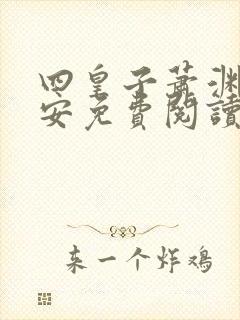 四皇子萧渊
安免費閱讀
来一个炸鸡